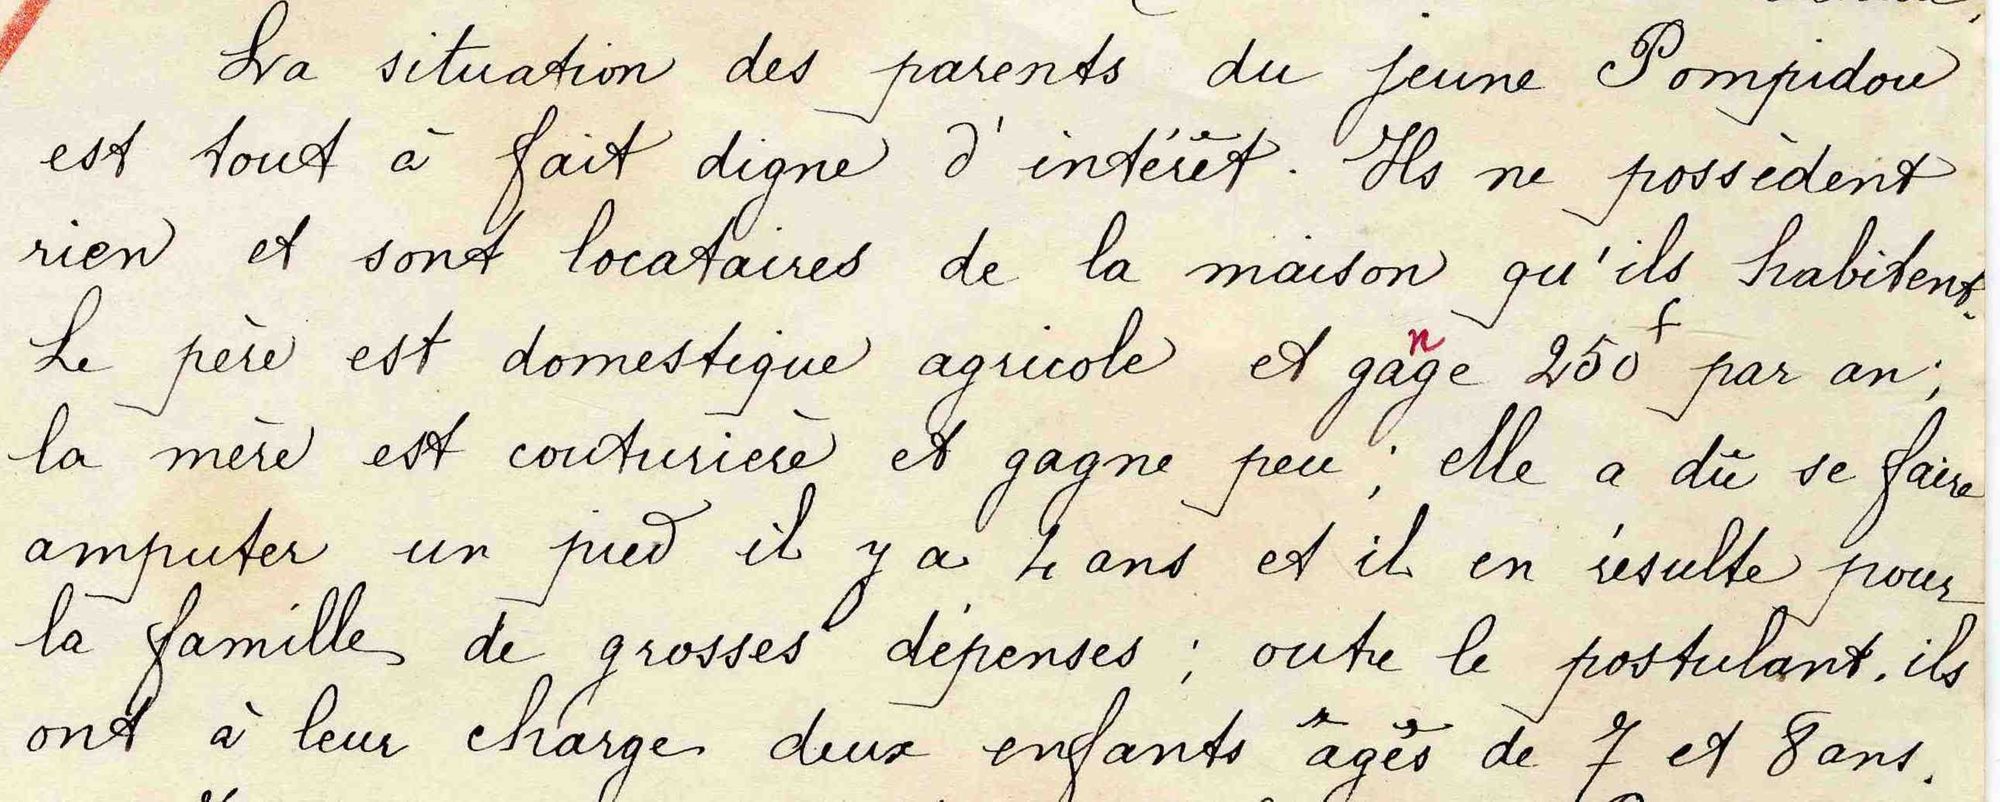 La situation des parents du jeune Pompidou
est tout à fait digne d'intérêt. Ils ne possèdent
rien et sont locataires de la maison qu'ils habitent.
Le père est domestique agricole et gage 250 f par an ;
n
la mère est couturière et gagne peu ; elle a dû se faire
amputer un pied il y a 4 ans et il en résulte pour
la famille de grosses dépenses ; outre le postulant, ils
ont à leur charge deux enfants âgés de 7 et 8 ans.